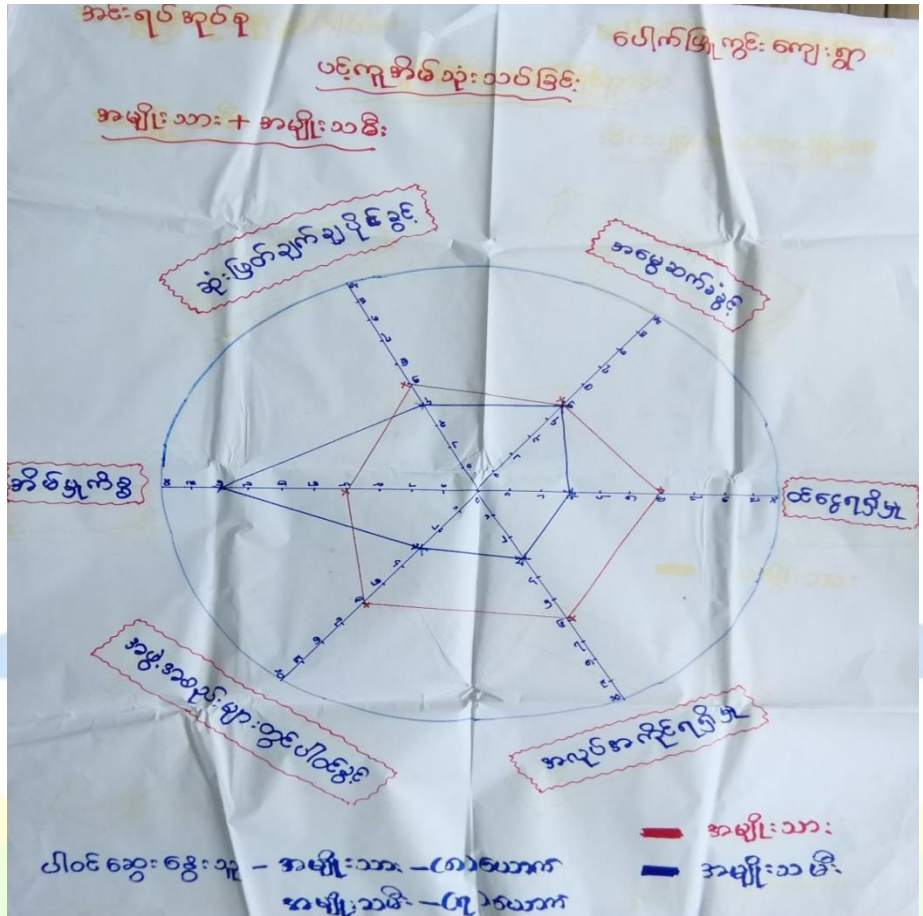 အင်းရပ်အုပ်စု
ပေါက်မြိုကွင်းကျေးရွာ
ပင့်ကူအိမ်သုံးသပ်ခြင်း
အမျိုးသား + အမျိုးသမီး
ဆုံးဖြတ်ချက်ချပိုင်ခွင့်
အမွေဆက်ခံခွင့်
အိမ်မှုကိစ္စ
ဝင်ငွေရရှိမှု
အဖွဲ့အစည်းများတွင်ပါဝင်ခွင့်
အလုပ်အကိုင်ရရှိမှု
အမျိုးသား
ပါဝင်ဆွေးနွေးသူ - အမျိုးသား - (၈)ယောက်
အမျိုးသမီး
အမျိုးသမီး - (၇)ယောက်